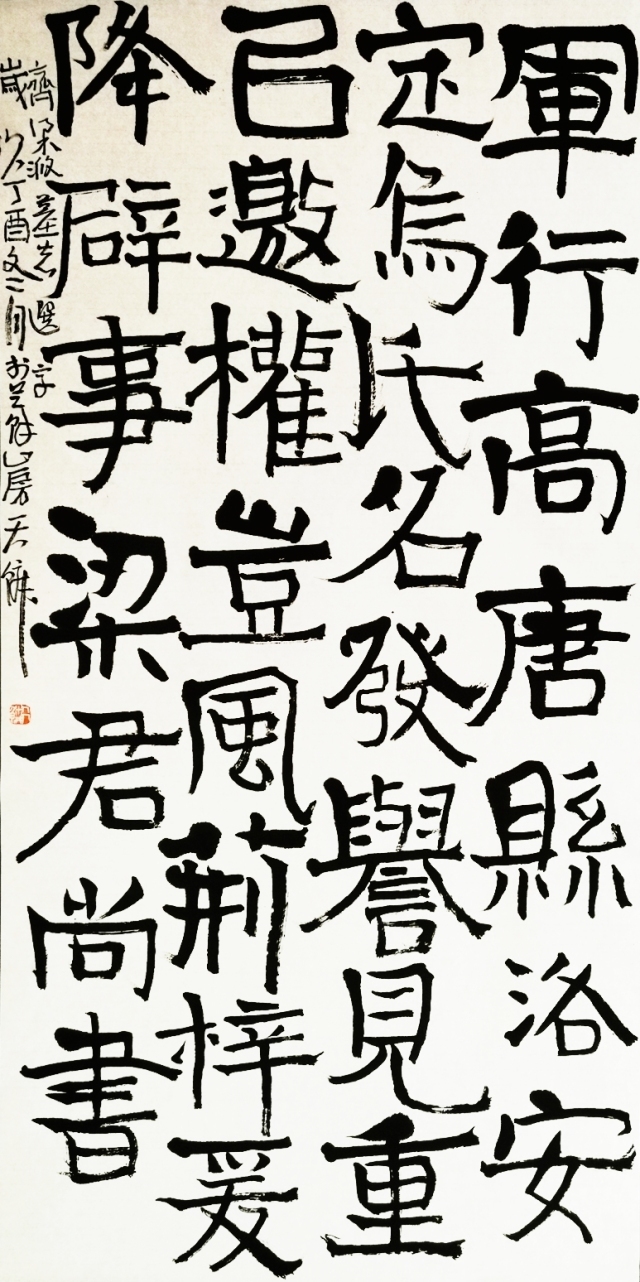 軍行高唐縣洛安
定烏氏名發譽見重
已邀權豈風荊梓爰
降辟事梁君尚書
齊梁墓志選字
歲次丁酉月於山房天